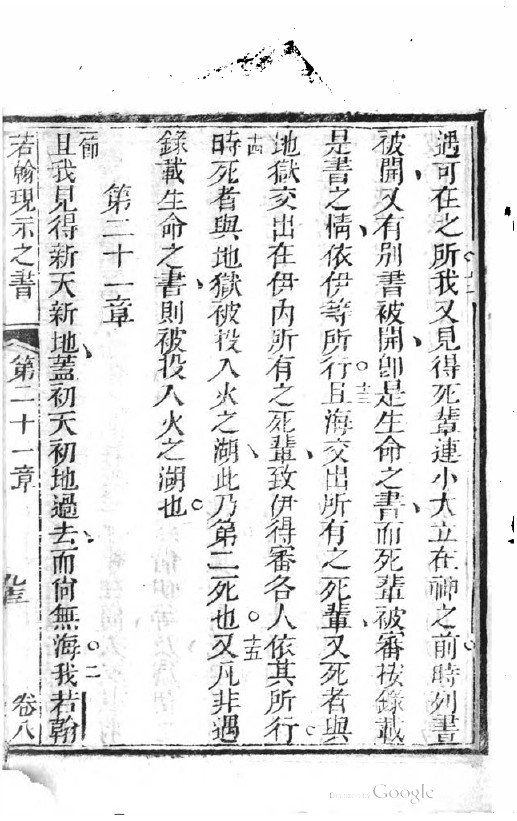 遇可在之所。十二我又見得死輩連小大立在神之前時列書
被開、又有別書被開、卽是生命之書、而死輩被審按錄載
是書之情、依伊等所行。十三且海交出所有之死輩、又死者與
地獄交出在伊內所有之死輩、致伊得審各人依其所行。
十四時死者與地獄被投入火之湖、此乃第二死也。十五又凡非遇
錄載生命之書、則被投入火之湖也。
第二十一章
一節且我見得新天新地、蓋初天初地過去、而尙無海。二我若翰
若翰現示之書
第二十一章
卷八
Google